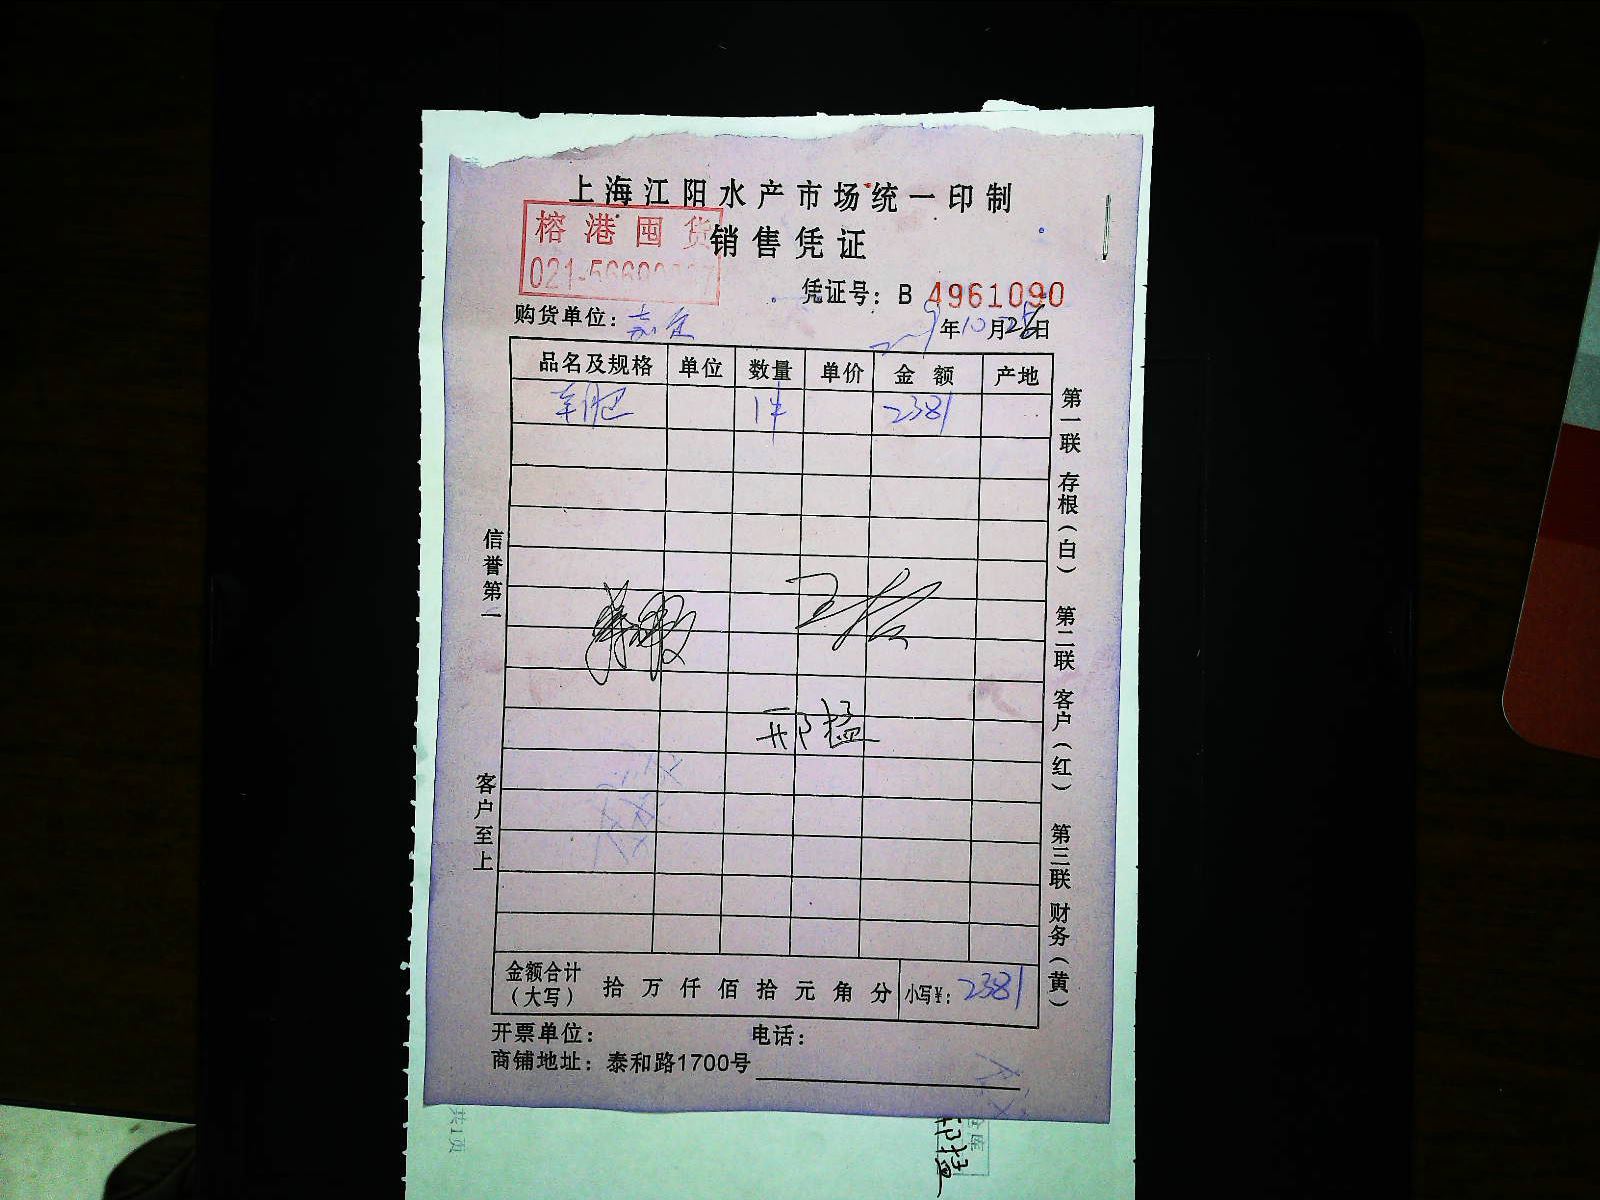 上海江阳水产市场统一印制
榕港囤货
销售凭证
凭证号：B 4961090
购货单位：
年10月28日
品名及规格 单位 数量 单价 金额 产地
1件 2381
第一联 存根（白） 第二联 客户（红） 第三联 财务（黄）
信誉第一
邢猛
客户至上
金额合计（大写） 拾万仟佰拾元角分 小写¥：2381
开票单位： 电话：
商铺地址：泰和路1700号
共1页